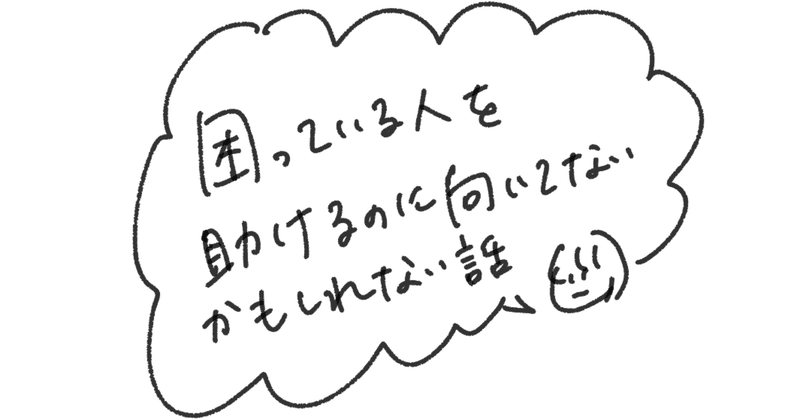 困っている人を
助けるのに向いてない
かもしれない話